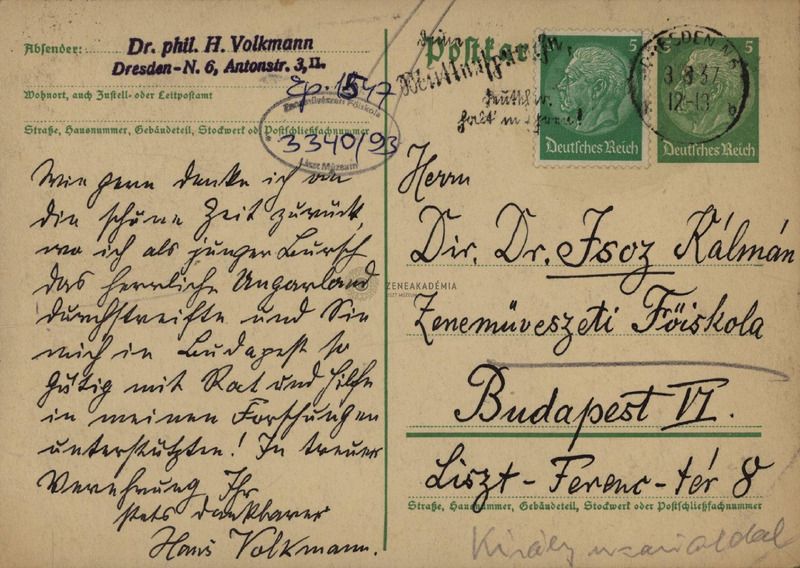 Absender: Dr. phil. H. Volkmann
Dresden-N. 6, Antonstr. 3, II.
Wohnort, auch Zustell- oder Leitpostamt
Straße, Hausnummer, Gebäudeteil, Stockwerk od. Postschließfachnummer
Ep. 1547
Zeneművészeti Főiskola
3340/93
Liszt Múzeum
Postkarte
5
Deutsches Reich
5
Deutsches Reich
DRESDEN N6
8.3.37
12-13
b
Wie gern denke ich an
die schöne Zeit zurück,
wo ich als junger Bursch
das herrliche Ungarland
durchstreifte und Sie
mich in Budapest so
gütig mit Rat und Hilfe
in meinen Forschungen
unterstützten! In treuer
Verehrung Ihr
stets dankbarer
Hans Volkmann.
Herrn
Dir. Dr. Isoz Kálmán
Zeneművészeti Főiskola
Budapest VI.
Liszt-Ferenc-tér 8
Straße, Hausnummer, Gebäudeteil, Stockwerk oder Postschließfachnummer
ZENEAKADÉMIA
LISZT MÚZEUM